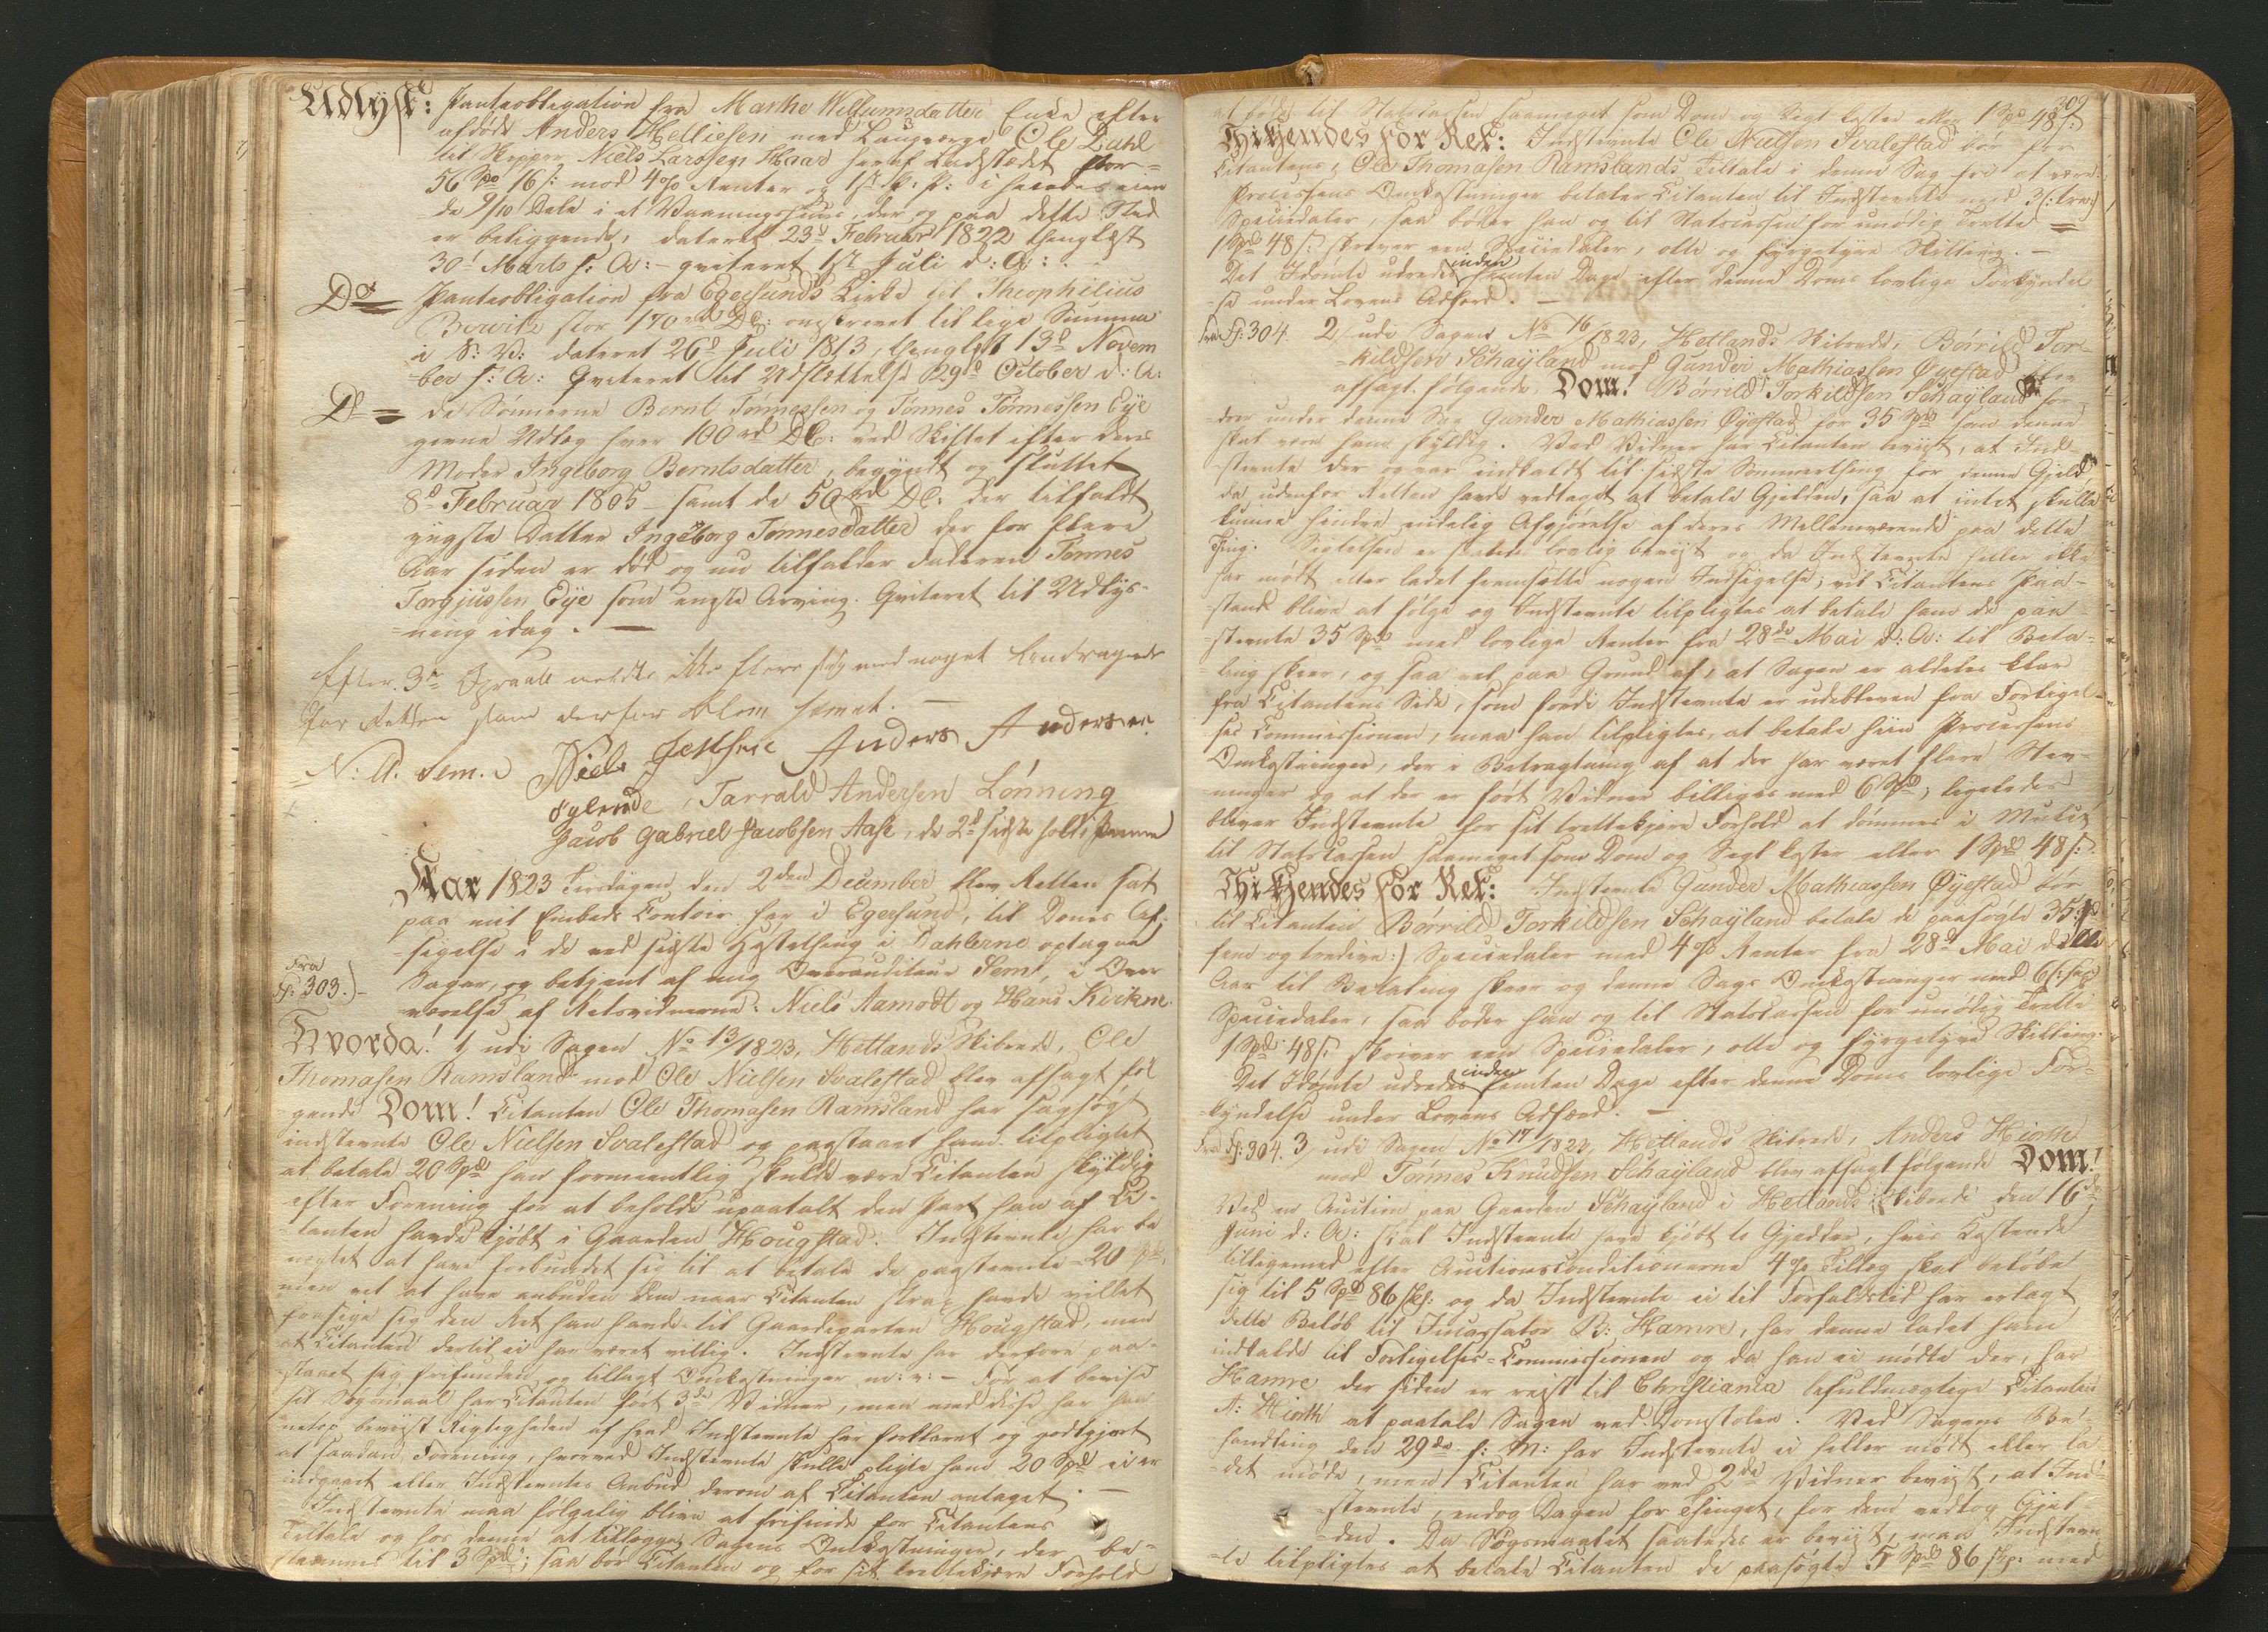 Udlyst: Panteobligation fra Marthe Willumsdatter Enke efter
afdøde Anders Helliesen med Laugværge Ole Dahl
til Skipper Niels Larssen Haar her af Ladstædet stor
56 Spd 16 s: mod 4 % Renter og 1ste P: P: i hendes eien
de 9/10 Dele i et Vaaningshuus, der og paa dette Sted
er beliggende, dateret 23d Februar 1822 thinglæst
30d Marts s: A: - qviteret 1ste Juli d: A:
Do Panteobligation fra Egersunds Kirke til Theophilius
Bewitz stor 170 rd DC: omskrevet til lige Summa
i S: V: dateret 26d Juli 1813, thinglyst 13d Novem
ber s: A: Qviteret til Udslettelse 29d October d: A:
Do = de Sønnerne Bernt Tønnessen og Tønnes Tønnessen Eye
givne Udlæg hver 100 rd DC: ved Skiftet efter deres
Moder Ingeborg Berntsdatter, begyndt og sluttet
8d Februar 1805 - samt de 50 rd DC: der tilfaldt
yngste Datter Ingeborg Tønnesdatter der for flere
Aar siden er død og nu tilfalder Faderen Tønnes
Torgjussen Eye som eneste Arving. Qviteret til Udlys-
-ning idag. -
Efter 3de Opraab meldte ikke flere sig med noget Andragende
for Retten som derfor blev hævet. -
N: A. Sem. Niels Anders Andersen
Tarrald Andersen Lønning
Jacob Gabriel Jacobsen Aase, de 2d sidste holdt i Pennen
Aar 1823 Tirsdagen den 2den December blev Retten sat
paa mit Embeds Contoir her i Egersund, til Doms Af-
-sigelse i de ved sidste Høstething i Dahlerne optagne
Sager, og betjent af mig Overauditeur Sem, i Over
værelse af Retsvidnerne Niels Aamodt og Hans Kirkne.
Fra
f: 303.)
Hvorda! 1 udi Sagen No 13/1823, Hetlands Skibrede, Ole
Thomasen Ramsland mod Ole Nielsen Svalestad blev afsagt føl
gende Dom! Citanten Ole Thomasen Ramsland har sagsøgt
indstevnte Ole Nielsen Svalestad og paastaaet ham tilpligtet
at betale 20 Spd han formeentlig skulde være Citanten skyldig
efter Forening for at beholde upaatalt den Part han af Ci-
tanten havde kjøbt i Gaarden Hougstad. Indstevnte har be
negtet at have forbundet sig til at betale de paastevnte 20 Spd,
men vel at have anbuden dem naar Citanten strax havde villet
frasige sig den Ret han havde til Gaardeparten Hougstad, men
at Citanten dertil ei har været villig. Indstevnte har derfore paa-
-staaet sig frifunden og tillagt Omkostninger m: v: - For at bevise
sit Søgmaal har Citanten ført 3de Vidner, men med disse har han
bevist Rigtigheden af hvad Indstevnte har forklaret og godtgjort
at saadan Forening, hvorved Indstevnte skulle pligte ham 20 Spd ei er
indgaaet eller Indstevntes Anbud derom af Citanten antaget. -
Indstevnte maa følgelig blive at frifinde for Citantens
Tiltale og hos denne at tillægges Sagens Omkostninger, der be-
stemmes til 3 Spd; saa bør Citanten og for sit trettekjære Forhold
309
at bøde til Statscassen saameget som Dom og Segl koster eller 1 Spd 48 s:
Thi kjendes for Ret: Indstevnte Ole Nielsen Svalestad bør for
Citantens, Ole Thomasen Ramslands Tiltale i denne Sag fri at være.
Processens Omkostninger betaler Citanten til Indstevnte med 3 (: tre:)
Speciedaler, saa bøder han og til Statscassen for unødig Trette
1 Spd 48 s: skriver een Speciedaler, otte og fyrgetyve Skilling. -
Det Idømte udredes inden femten Dage efter denne Doms lovlige Forkyndel
-se under Lovens Adfærd. -
Fra f: 304. 2 udi Sagen No 16/1823, Hetlands Skibrede, Børrild Tor-
-kildsen Schayland mod Gunder Mathiassen Øyestad blev
afsagt følgende Dom! Børrild Torkildsen Schayland for-
-drer under denne Sag Gunder Mathiassen Øyestad for 35 Spd som denne
skal være ham skyldig. Ved Vidner har Citanten bevist, at Ind-
-stevnte der og var indkaldt til sidste Sommerthing for denne Gjeld
da udenfor Retten havde vedtaget at betale Gjelden, saa at intet skulle
kunne hindre endelig Afgjørelse af deres Mellemværende paa dette
Ting. Sigtelsen er saaledes lovlig bevist og da Indstevnte heller ikke
har mødt eller ladet fremsætte nogen Indsigelse, vil Citantens Paa-
-stand blive at følge og Indstevnte tilpligtes at betale ham de paa-
-stevnte 35 Spd med lovlige Renter fra 28de Mai d: A: til Beta-
-ling skeer, og saa vel paa Grund af, at Sagen er aldeles klar
fra Citantens Side, som fordi Indstevnte er udebleven fra Forligel-
ses Commissionen, maa han tilpligtes, at betale hiin Processens
Omkostninger, der i Betragtning af at der har været flere Stev-
-ninger og at der er ført Vidner billiges med 6 Spd; ligeledes
bliver Indstevnte for sit trettekjære Forhold at dømmes i Mulct
til Statscassen saameget som Dom og Segl koster eller 1 Spd 48 s:
Thi kjendes for Ret: Indstevnte Gunder Mathiassen Øyestad bør
til Citanten Børrild Torkildsen Schayland betale de paasøgte 35 (:
fem og tredive:) Speciedaler med 4 % Renter fra 28d Mai dette
Aar til Betaling skeer og denne Sags Omkostninger med 6 (: sex:)
Speciedaler, saa bøder han og til Statscassen for unødig Trette
1 Spd 48 s: skriver een Speciedaler, otte og fyrgetyve Skilling.
Det Idømte udredes inden femten Dage efter denne Doms lovlige For-
-kyndelse under Lovens Adfærd. -
Fra f: 304. 3 udi Sagen No 17/1823, Hetlands Skibrede, Anders Hiorth
mod Tønnes Knudsen Schayland blev afsagt følgende Dom!
Ved en Auction paa Gaarden Schayland i Hetlands Skibrede den 16de
Juni d: A: skal Indstevnte have kjøbt to Gjedder, hvis Kostende
tilligemed efter Auctionsconditionerne 4 % Tillæg skal beløbe
sig til 5 Spd 86 sk: og da Indstevnte ei til Forfaldstid har erlagt
dette Beløb til Incassator B: Hamre, har denne ladet ham
indkalde til Forligelses-Commissionen og da han ei mødte der, har
Hamre der siden er reist til Christiania befuldmægtiget Citanten
A: Hiorth at paatale Sagen ved Domstolen. Ved Sagens Be-
handling den 29de f: M: har Indstevnte ei heller mødt eller la-
det møde, men Citanten har ved 2de Vidner bevist, at Ind-
-stevnte endog Dagen for Thinget, for dem vedtog Gjel-
-den. Da Søgsmaalet saaledes er bevist, maa Indstevn
-te tilpligtes at betale Citanten de paasøgte 5 Spd 86 sk: med